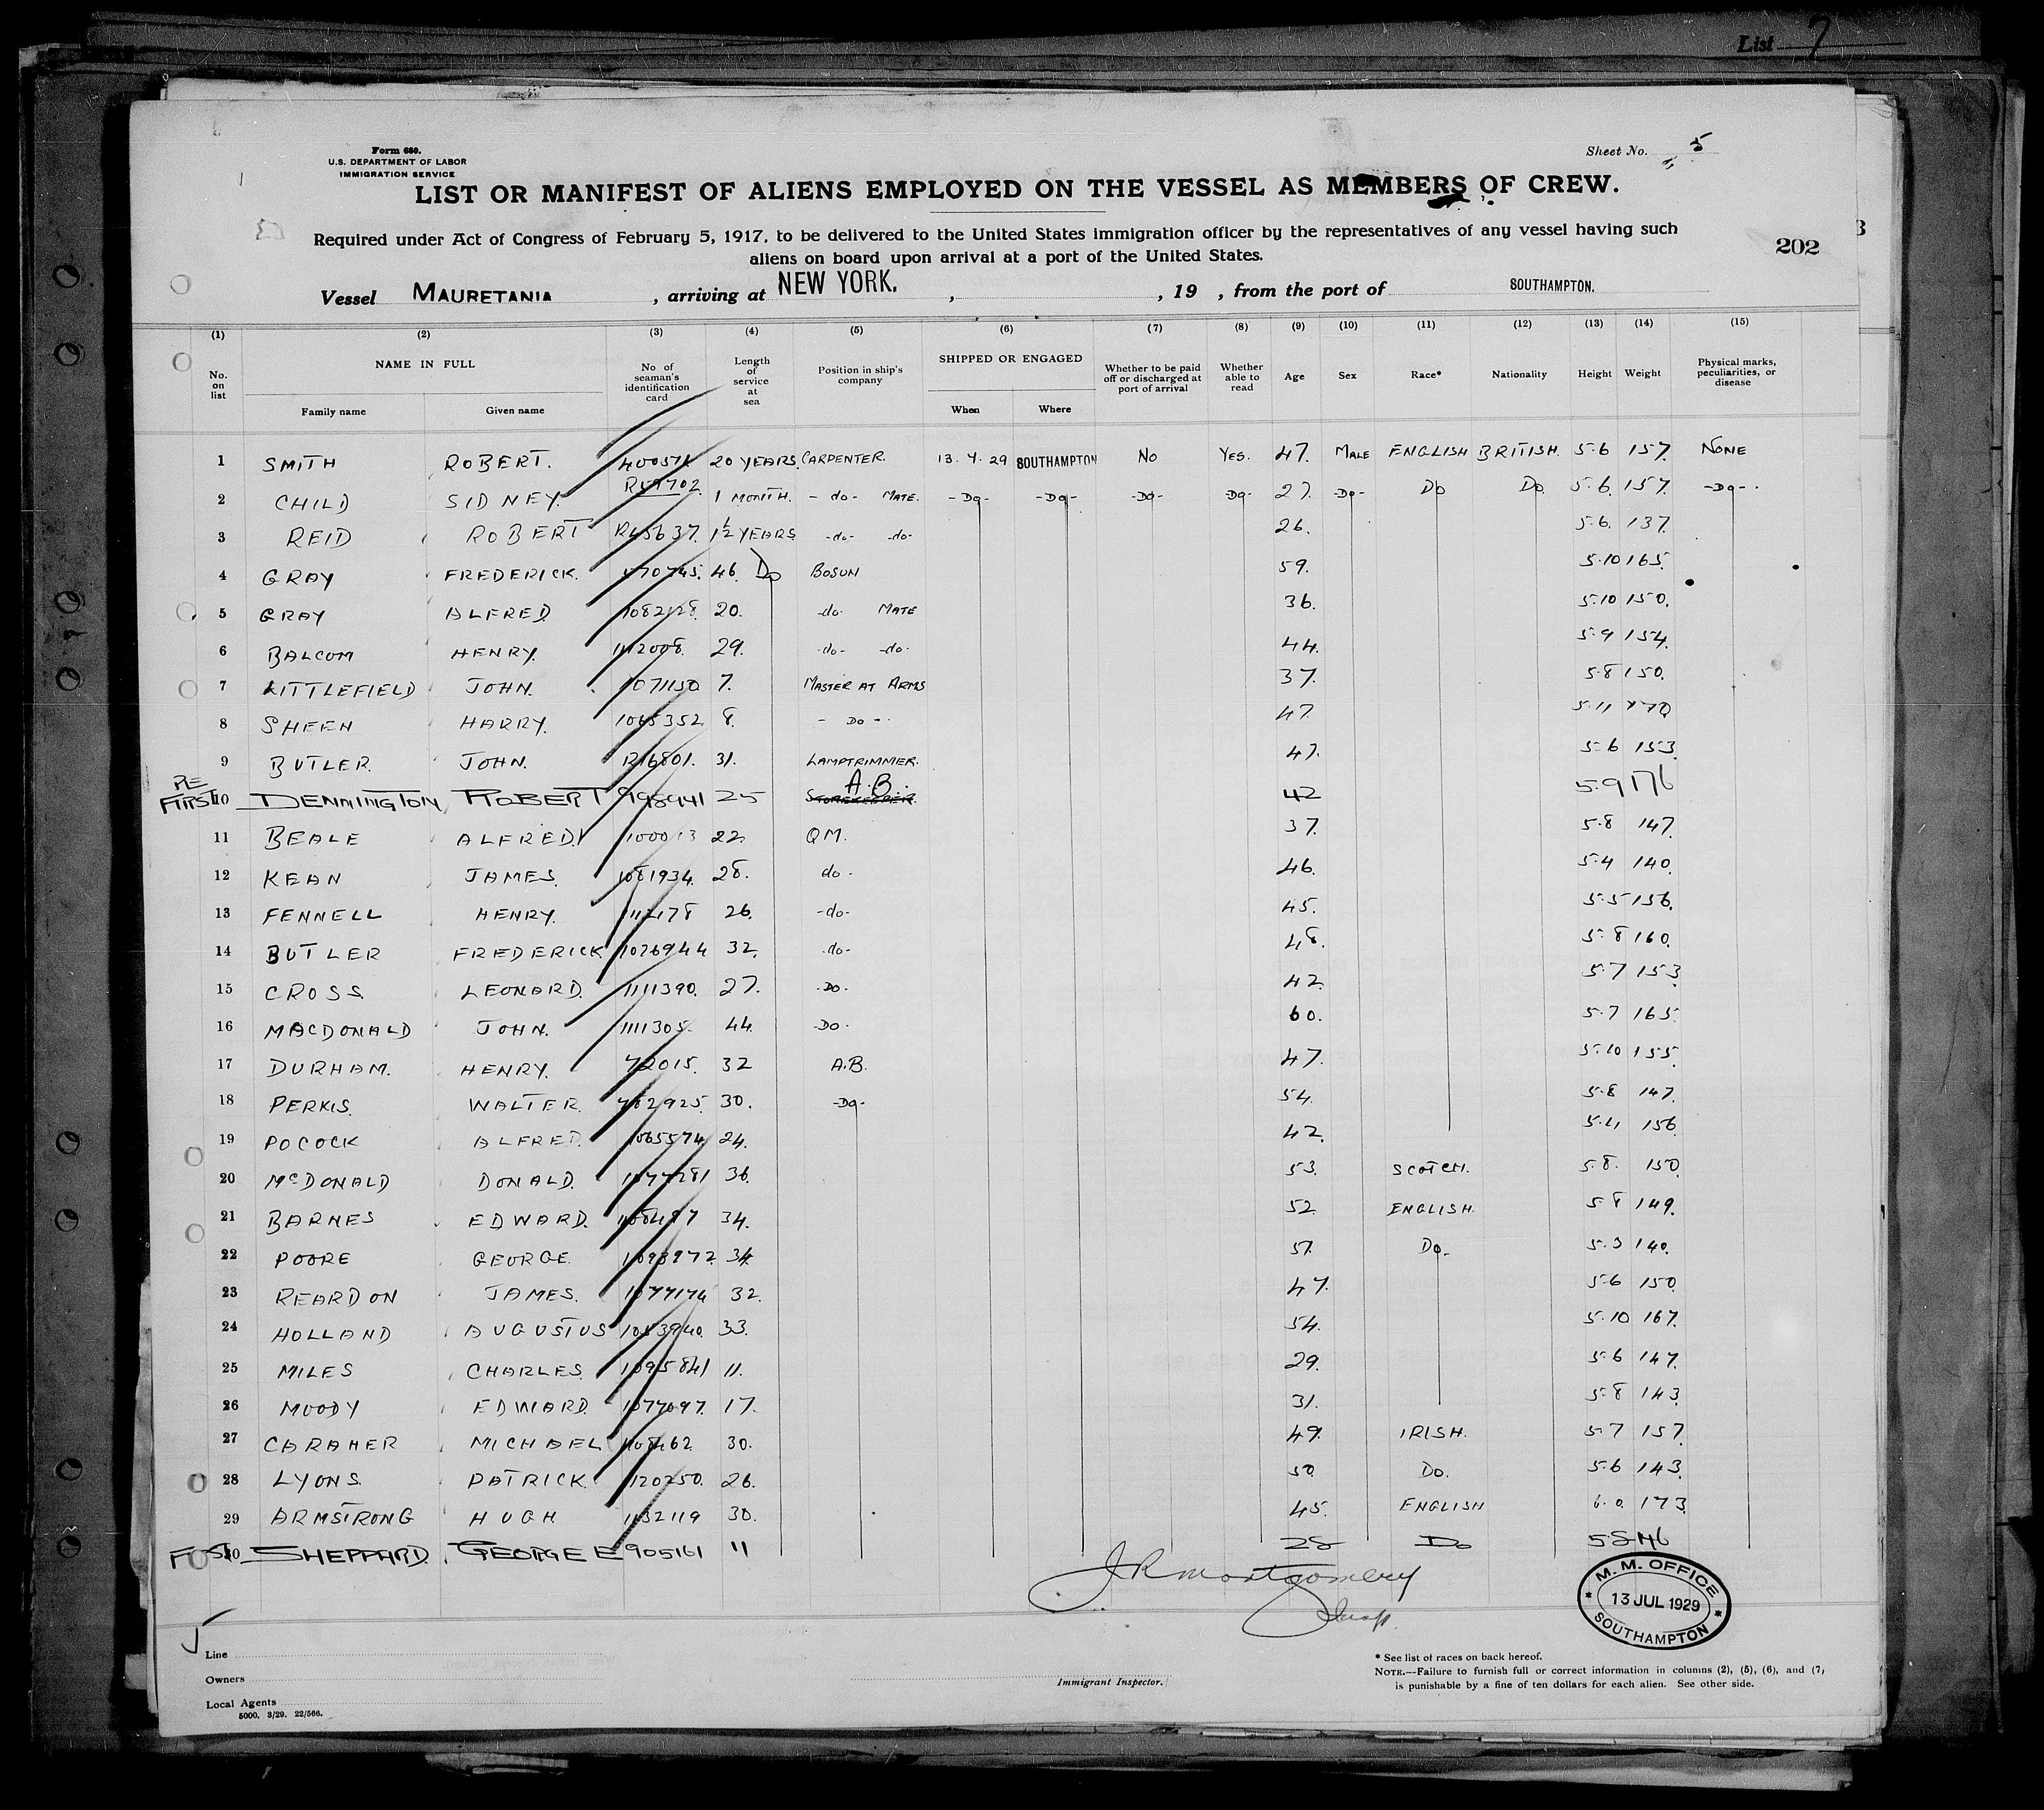 List 7
Form 680.
U.S. DEPARTMENT OF LABOR
IMMIGRATION SERVICE
Sheet No. 5
LIST OR MANIFEST OF ALIENS EMPLOYED ON THE VESSEL AS MEMBERS OF CREW.
Required under Act of Congress of February 5, 1917, to be delivered to the United States immigration officer by the representatives of any vessel having such
aliens on board upon arrival at a port of the United States.
202
Vessel MAURETANIA, arriving at NEW YORK., , 19 , from the port of SOUTHAMPTON.
(1) (2) (3) (4) (5) (6) (7) (8) (9) (10) (11) (12) (13) (14) (15)
No. on list NAME IN FULL Family name Given name No. of seaman's identification card Length of service at sea Position in ship's company SHIPPED OR ENGAGED When Where Whether to be paid off or discharged at port of arrival Whether able to read Age Sex Race* Nationality Height Weight Physical marks, peculiarities, or disease
1 SMITH ROBERT. 20 YEARS. CARPENTER. 29 SOUTHAMPTON NO YES. 47. MALE ENGLISH BRITISH. 5-6 157. NONE
2 CHILD SIDNEY. 1 MONTH. -do- MATE. -Do- -Do- -Do- -Do- 27. -Do- Do Do. 5-6. 157. -Do-.
3 REID ROBERT 1½ YEARS -do- -do- 26. 5-6. 137.
4 GRAY FREDERICK. 46. Do BOSUN 59. 5-10 165.
5 GRAY ALFRED 20. -do- MATE 36. 5-10 150.
6 BALCOM HENRY. 1112008. 29. -do- -do- 44. 5-9 154.
7 LITTLEFIELD JOHN. 1071150 7. MASTER AT ARMS 37. 5-8 150.
8 SHEEN HARRY. 1065352 8. - Do - 47. 5-11 170
9 BUTLER. JOHN. 31. LAMPTRIMMER. 47. 5-6 153
FIRST 10 DENNINGTON ROBERT 998941 25 A.B. STOREKEEPER. 42 5-9 176
11 BEALE ALFRED. 22 QM. 37. 5-8 147.
12 KEAN JAMES. 1081934. 28. do - 46. 5-4 140.
13 FENNELL HENRY. 26. -do- 45. 5-5 156.
14 BUTLER FREDERICK 1026944 32. -do- 48. 5-8 160.
15 CROSS LEONARD. 1111390. 27. -Do- 42. 5-7 153
16 MACDONALD JOHN. 1111305. 44. -Do- 60. 5-7 165.
17 DURHAM. HENRY. 32 A.B. 47. 5-10 155.
18 PERKIS. WALTER. 30. -Do- 54. 5-8 147.
19 POCOCK ALFRED. 1065574 24. 42. 156
20 McDONALD DONALD. 36. 53. SCOTCH. 5-8. 150
21 BARNES EDWARD. 34. 52 ENGLISH. 5-8 149.
22 POORE GEORGE. 1093972. 34. 51. Do- 5-3 140.
23 REARDON JAMES. 1077174 32. 47. 5-6 150.
24 HOLLAND AUGUSTUS 33. 54. 5-10 167.
25 MILES CHARLES. 1095841 11. 29. 5-6 147.
26 MOODY EDWARD. 1077097. 17. 31. 5-8 143.
27 CARAHER MICHAEL 30. 49. IRISH. 5-7 157.
28 LYONS. PATRICK. 26. 50. Do. 5-6 143.
29 ARMSTRONG HUGH 1132119 30. 45. ENGLISH 6-0. 173
30 SHEPPARD. GEORGE E 905161 11 28 Do 5-8 146
J R Montgomery
M. M. OFFICE
13 JUL 1929
SOUTHAMPTON
Line
Owners
Local Agents
5000. 3/29. 22/566.
Immigrant Inspector.
* See list of races on back hereof.
NOTE.—Failure to furnish full or correct information in columns (2), (5), (6), and (7,
is punishable by a fine of ten dollars for each alien. See other side.